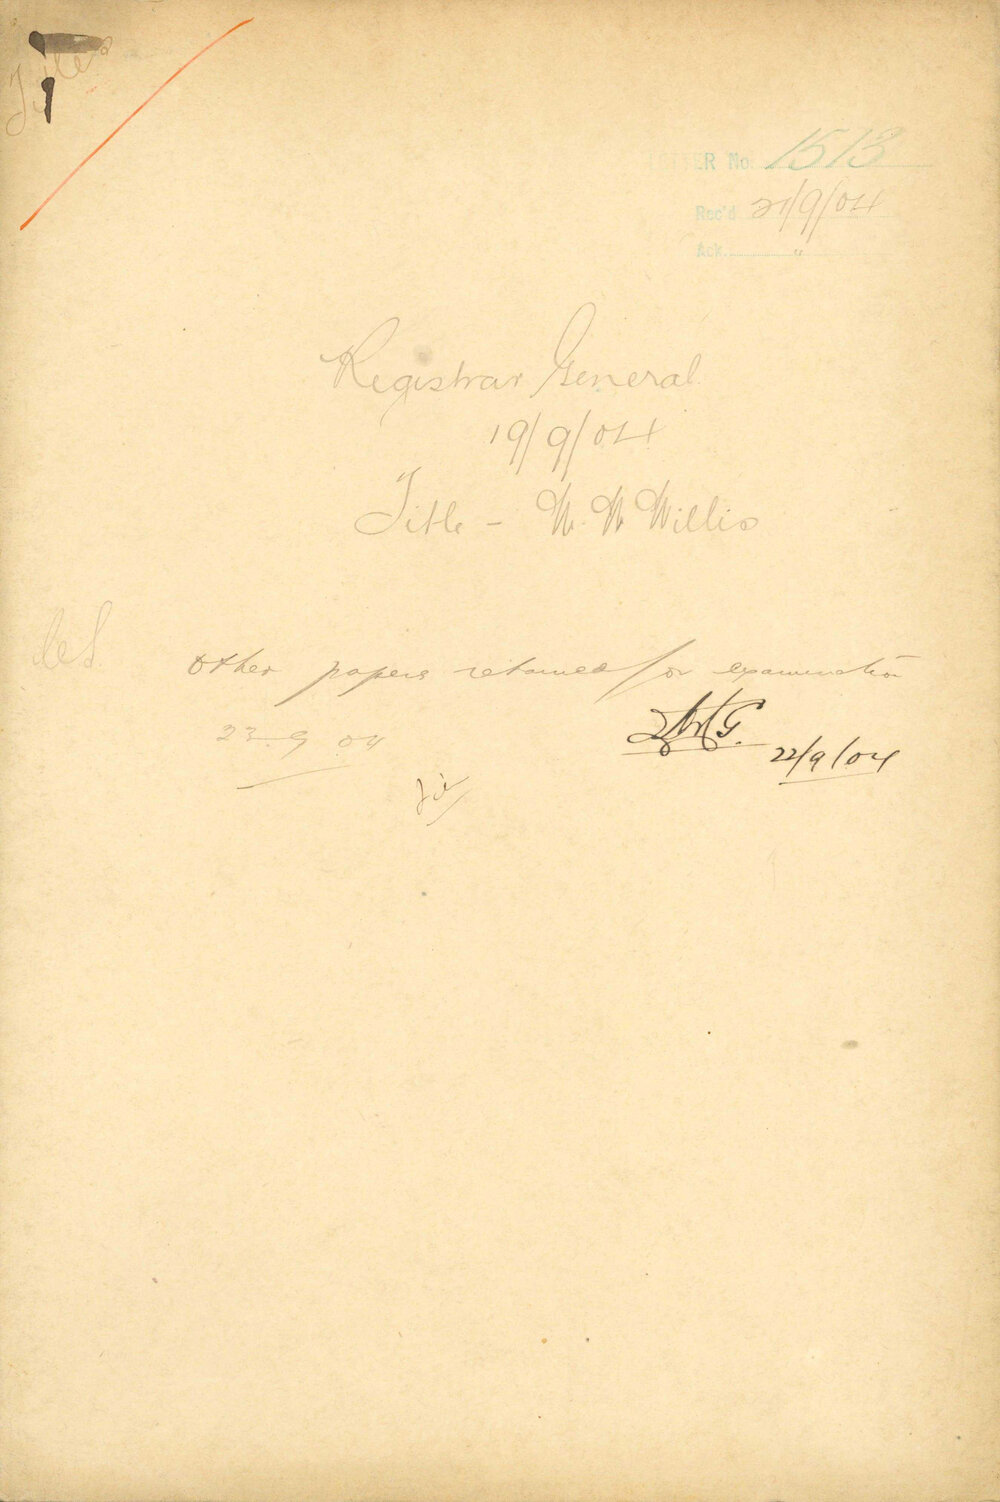 Titles
LETTER No. 1513
Rec'd 21/9/04
Ack. "
Registrar General
19/9/04
Title - W. N Willis
Other papers retained for examination
22/9/04
23.9.04